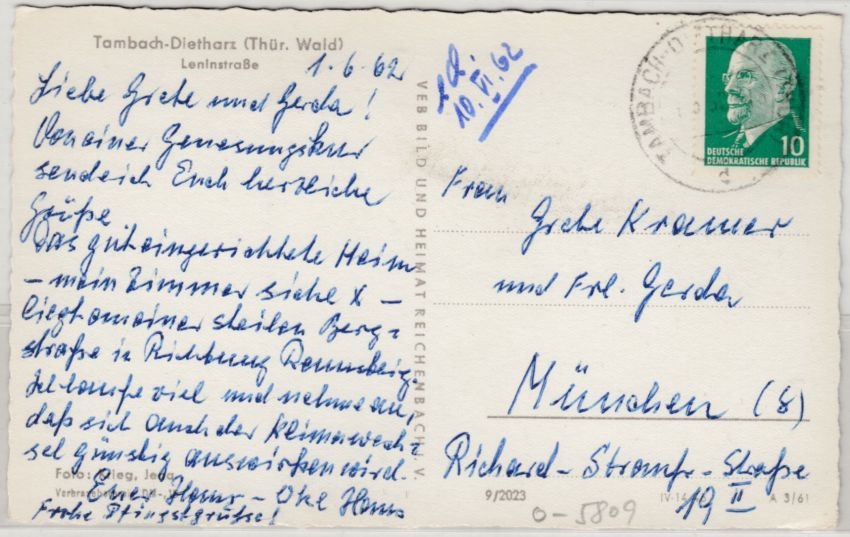 Tambach-Dietharz (Thür. Wald)
Leninstraße
1.6.62
Liebe Grete und Gerda!
Von einer Genesungskur
sende ich Euch herzliche
Grüße
Das gut eingerichtete Heim
– mein Zimmer siehe X –
liegt an einer steilen Berg-
straße in Richtung
Ich laufe viel und nehme an,
daß sich auch der Klimawech-
sel günstig auswirken wird.
Foto: Krieg, Jena
Euer Hans –
Frohe Pfingstgrüße!
VEB BILD UND HEIMAT REICHENBACH I. V.
10.VI.62
TAMBACH-DIETHARZ
DEUTSCHE
DEMOKRATISCHE REPUBLIK
10
Frau
Grete Kramer
und Frl. Gerda
München (8)
Richard-Strauß-Straße
19 II
9/2023
A 3/61
0-5809